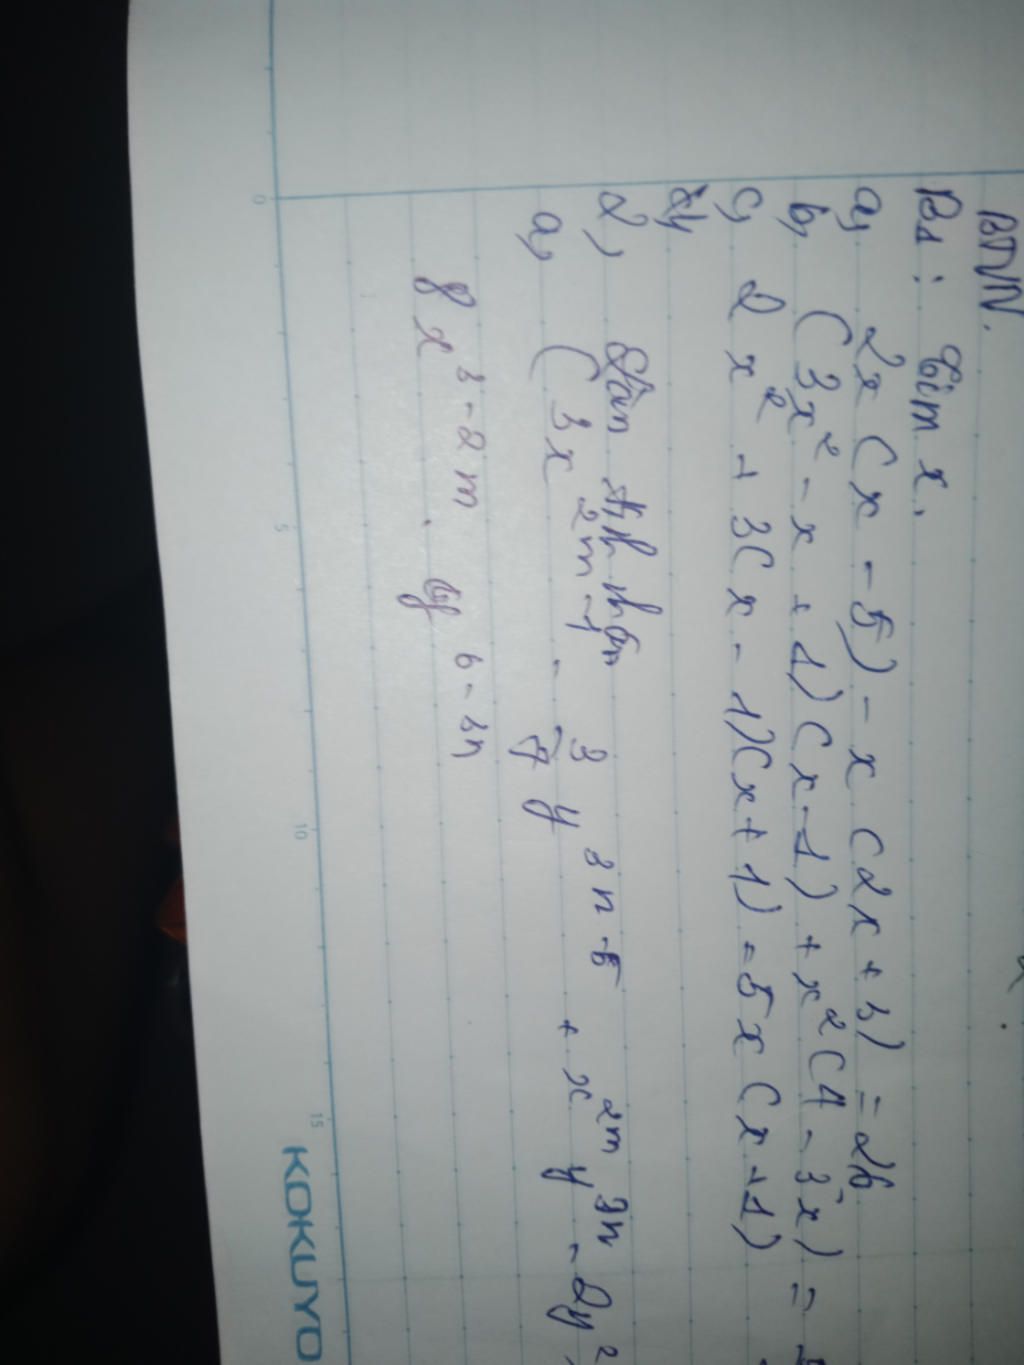 BTVN.
B1: Tìm x.
a, 2x(x - 5) - x(2x + 3) = 26
b, (3x² - x + 1)(x - 1) + x²(4 - 3x) =
c, 2x² + 3(x - 1)(x + 1) = 5x(x + 1)
2,
a, (3x²ᵐ⁻¹ - 3/7 y³ⁿ⁻⁵ + x²ᵐy³ⁿ - 2y²
8x³⁻²ᵐ . y⁶⁻³ⁿ
0 5 10 15
KOKUYO